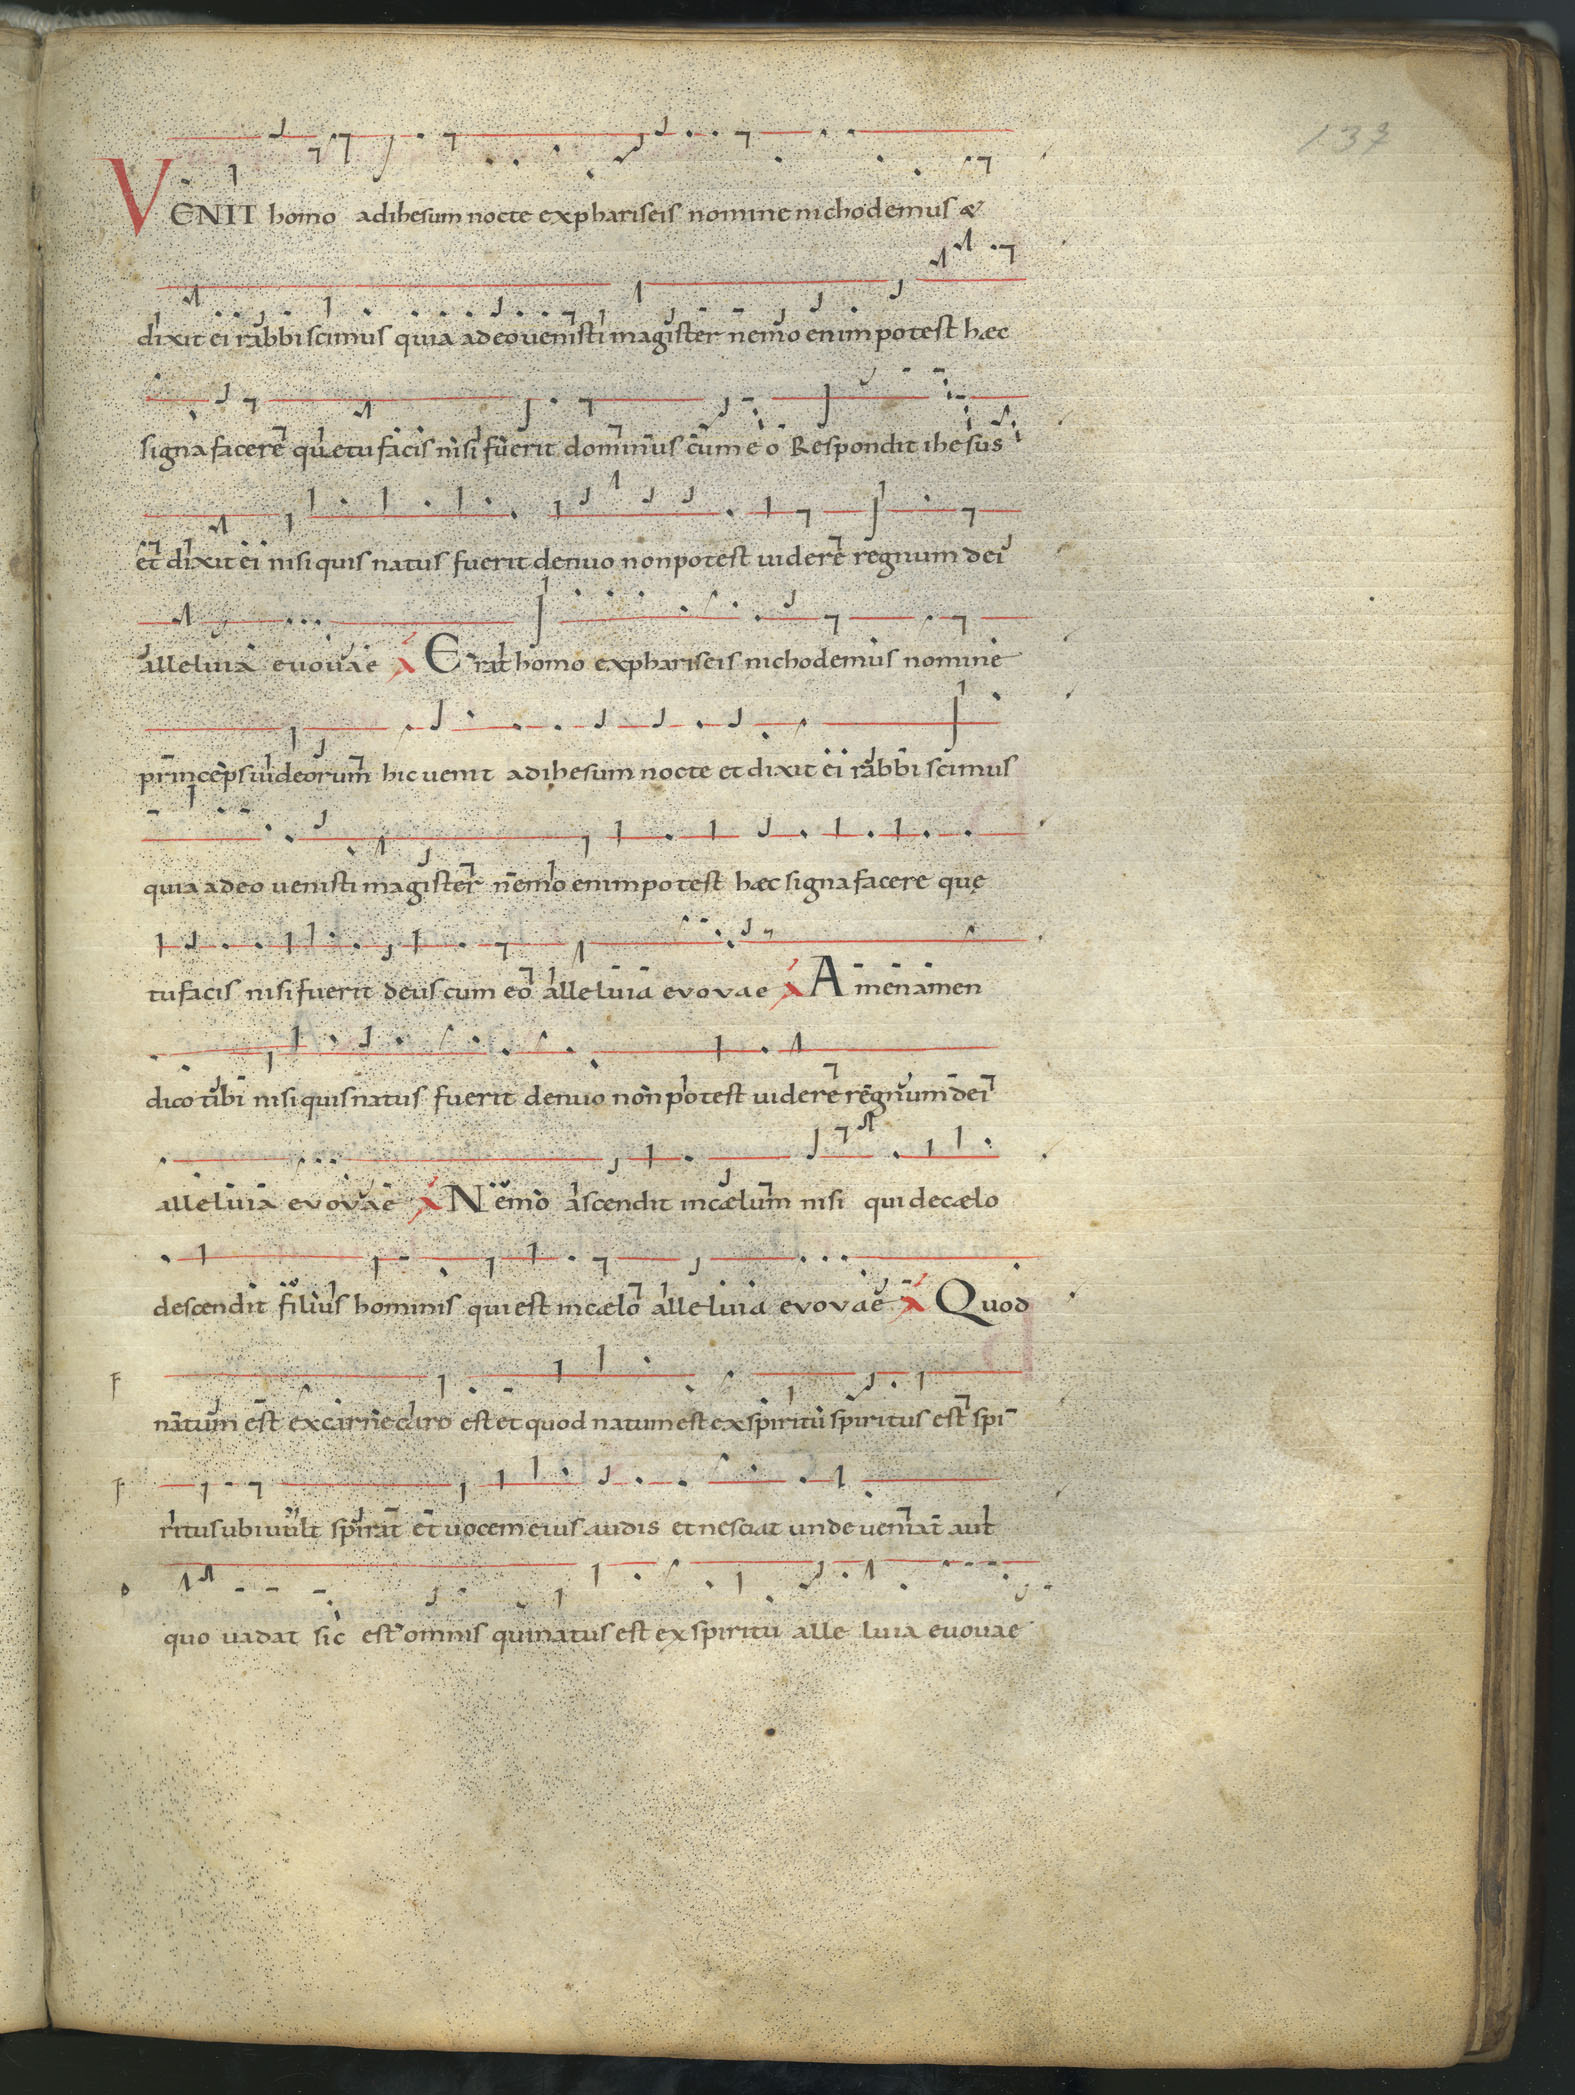 137
VENIT homo adihesum nocte exphariseis nomine nichodemus &
dixit ei rabbi scimus quia adeo uenisti magister nemo enim potest hæc
signa facere quę tu facis nisi fuerit dominus cum eo Respondit ihesus
et dixit ei nisi quis natus fuerit denuo non potest uidere regnum dei
alleluia euouae Erat homo exphariseis nichodemus nomine
princeps iudeorum hic uenit adihesum nocte et dixit ei rabbi scimus
quia adeo uenisti magister nemo enim potest hæc signa facere quę
tu facis nisi fuerit deus cum eo alleluia evovae Amen amen
dico tibi nisi quis natus fuerit denuo non potest uidere regnum dei
alleluia evovae Nemo ascendit in cælum nisi qui de cælo
descendit filius hominis qui est in cælo alleluia evovae Quod
F
natum est ex carne caro est et quod natum est ex spiritu spiritus est spi
F
ritus ubi uult spirat et uocem eius audis et nesciat unde ueniat aut
quo uadat sic est omnis qui natus est ex spiritu alleluia euouae